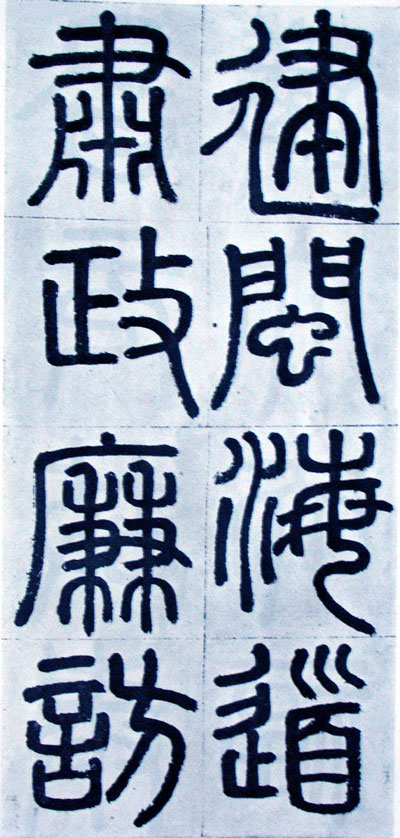 建閩海道
肅政廉訪